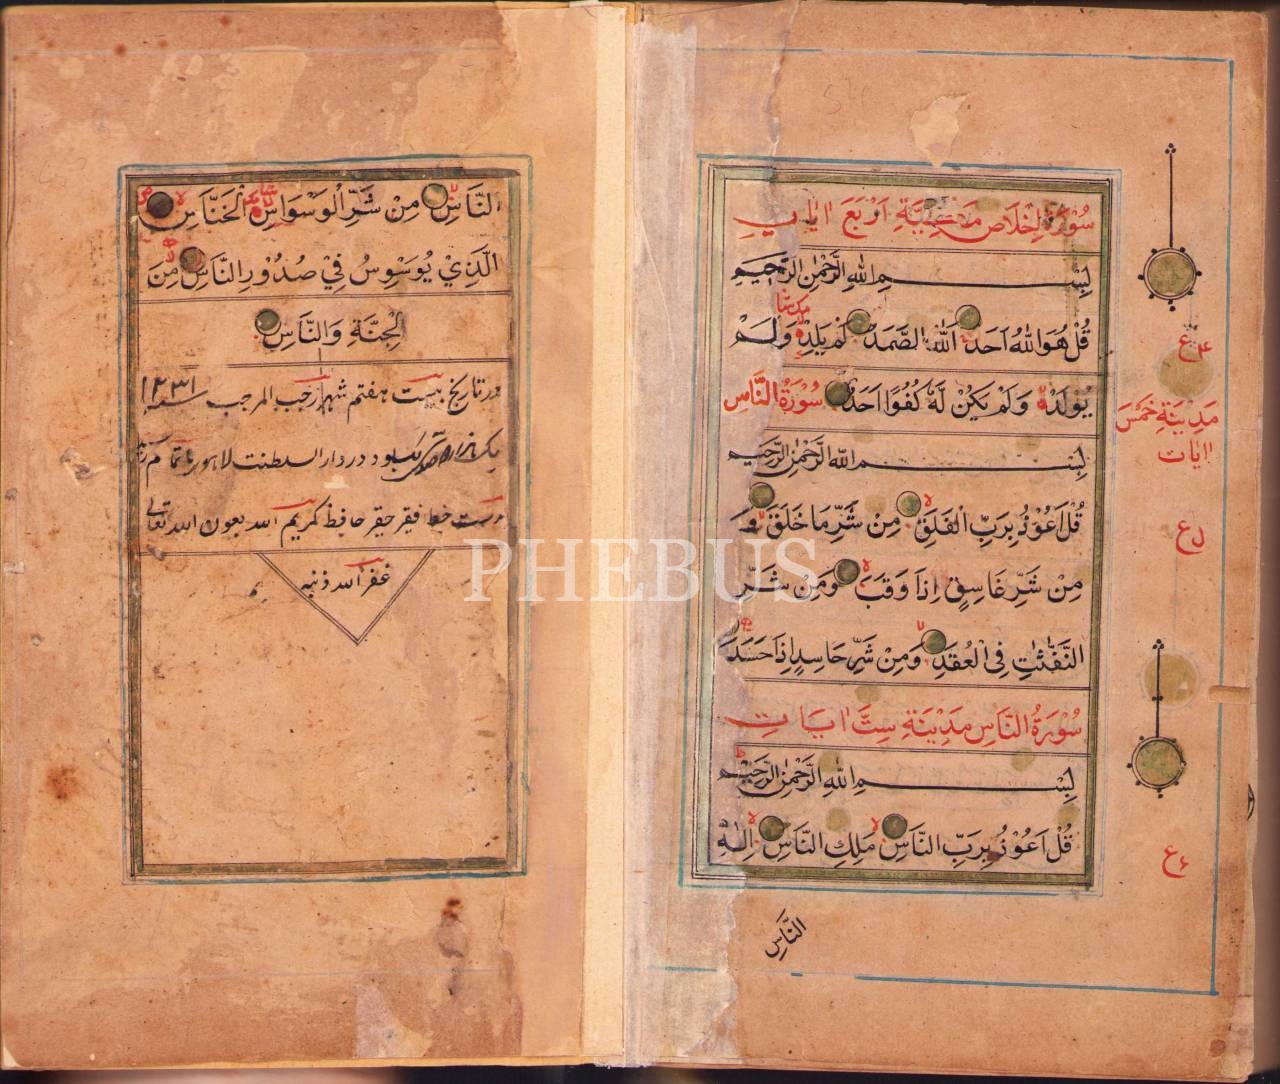 سُوْرَةُ اِخْلَاصٍ مَكِّيَّةٌ اَرْبَعَ اٰيَاتٍ
بِسْمِ اللهِ الرَّحْمٰنِ الرَّحِيْمِ
قُلْ هُوَ اللهُ اَحَدٌ اَللهُ الصَّمَدُ لَمْ يَلِدْ وَلَمْ
يُوْلَدْ وَلَمْ يَكُنْ لَّهٗ كُفُوًا اَحَدٌ سُوْرَةُ النَّاسِ
مَدِيْنَةِ خَمْسَ
اٰيَات
بِسْمِ اللهِ الرَّحْمٰنِ الرَّحِيْمِ
قُلْ اَعُوْذُ بِرَبِّ الْفَلَقِ مِنْ شَرِّ مَا خَلَقَ وَ
مِنْ شَرِّ غَاسِقٍ اِذَا وَقَبَ وَمِنْ شَرِّ
النَّفّٰثٰتِ فِى الْعُقَدِ وَمِنْ شَرِّ حَاسِدٍ اِذَا حَسَدَ
سُوْرَةُ النَّاسِ مَدِيْنَةِ سِتَّ اٰيَاتٍ
بِسْمِ اللهِ الرَّحْمٰنِ الرَّحِيْمِ
قُلْ اَعُوْذُ بِرَبِّ النَّاسِ مَلِكِ النَّاسِ اِلٰهِ
النَّاسِ
النَّاسِ مِنْ شَرِّ الْوَسْوَاسِ الْخَنَّاسِ
الَّذِيْ يُوَسْوِسُ فِيْ صُدُوْرِ النَّاسِ مِنَ
الْجِنَّةِ وَالنَّاسِ
در تاريخ بيست هفتم شهر رجب المرجب سنه ١٢٣١
در دار السلطنت لاهور باتمام
دست خط فقير حقير حافظ كريم الله بعون الله تعالى
غفر الله ذنبه
PHEBUS